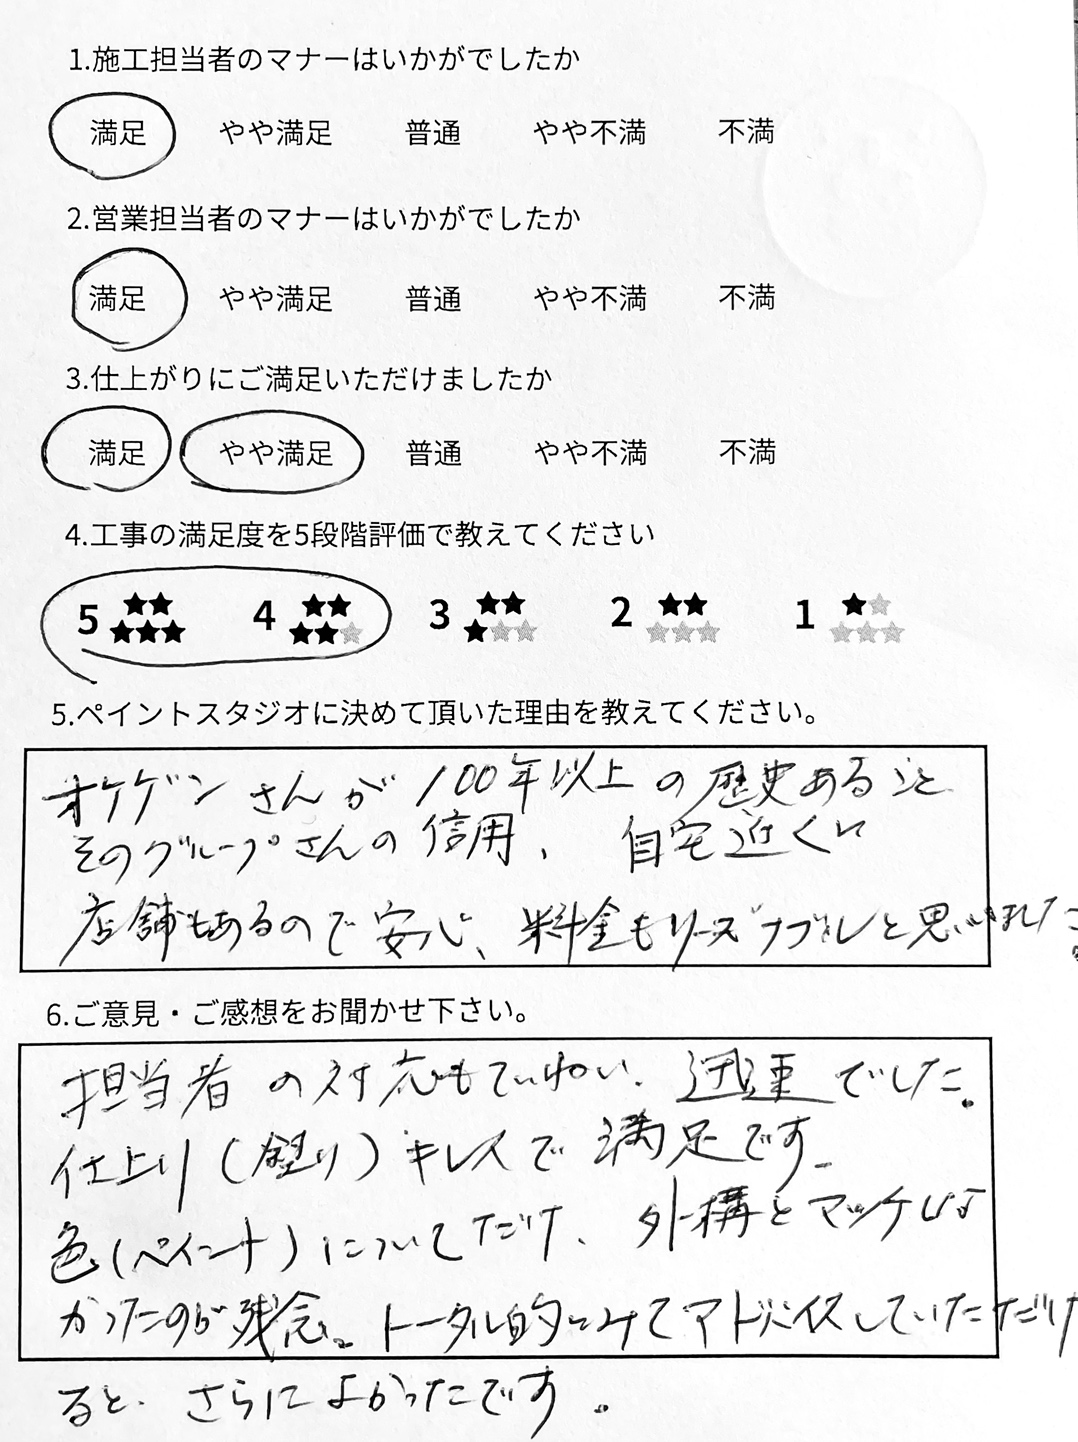 1.施工担当者のマナーはいかがでしたか
満足 やや満足 普通 やや不満 不満
2.営業担当者のマナーはいかがでしたか
満足 やや満足 普通 やや不満 不満
3.仕上がりにご満足いただけましたか
満足 やや満足 普通 やや不満 不満
4.工事の満足度を5段階評価で教えてください
5 ★★★★★ 4 ★★★★☆ 3 ★★★☆☆ 2 ★★☆☆☆ 1 ★☆☆☆☆
5.ペイントスタジオに決めて頂いた理由を教えてください。
オケゲンさんが100年以上の歴史あること
そのグループさんの信用、自宅近くに
店舗もあるので安心、料金もリーズナブルと思いました
6.ご意見・ご感想をお聞かせ下さい。
担当者の対応もていねい、迅速でした。
仕上り(塗り)キレイで満足です。
色(ペイント)についてだけ、外構とマッチしな
かったのが残念。トータル的にみてアドバイスしていただけ
ると、さらによかったです。